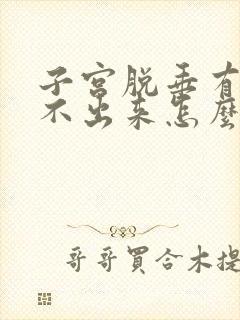 子宫脱垂有
不出来怎麼
哥哥買合木提